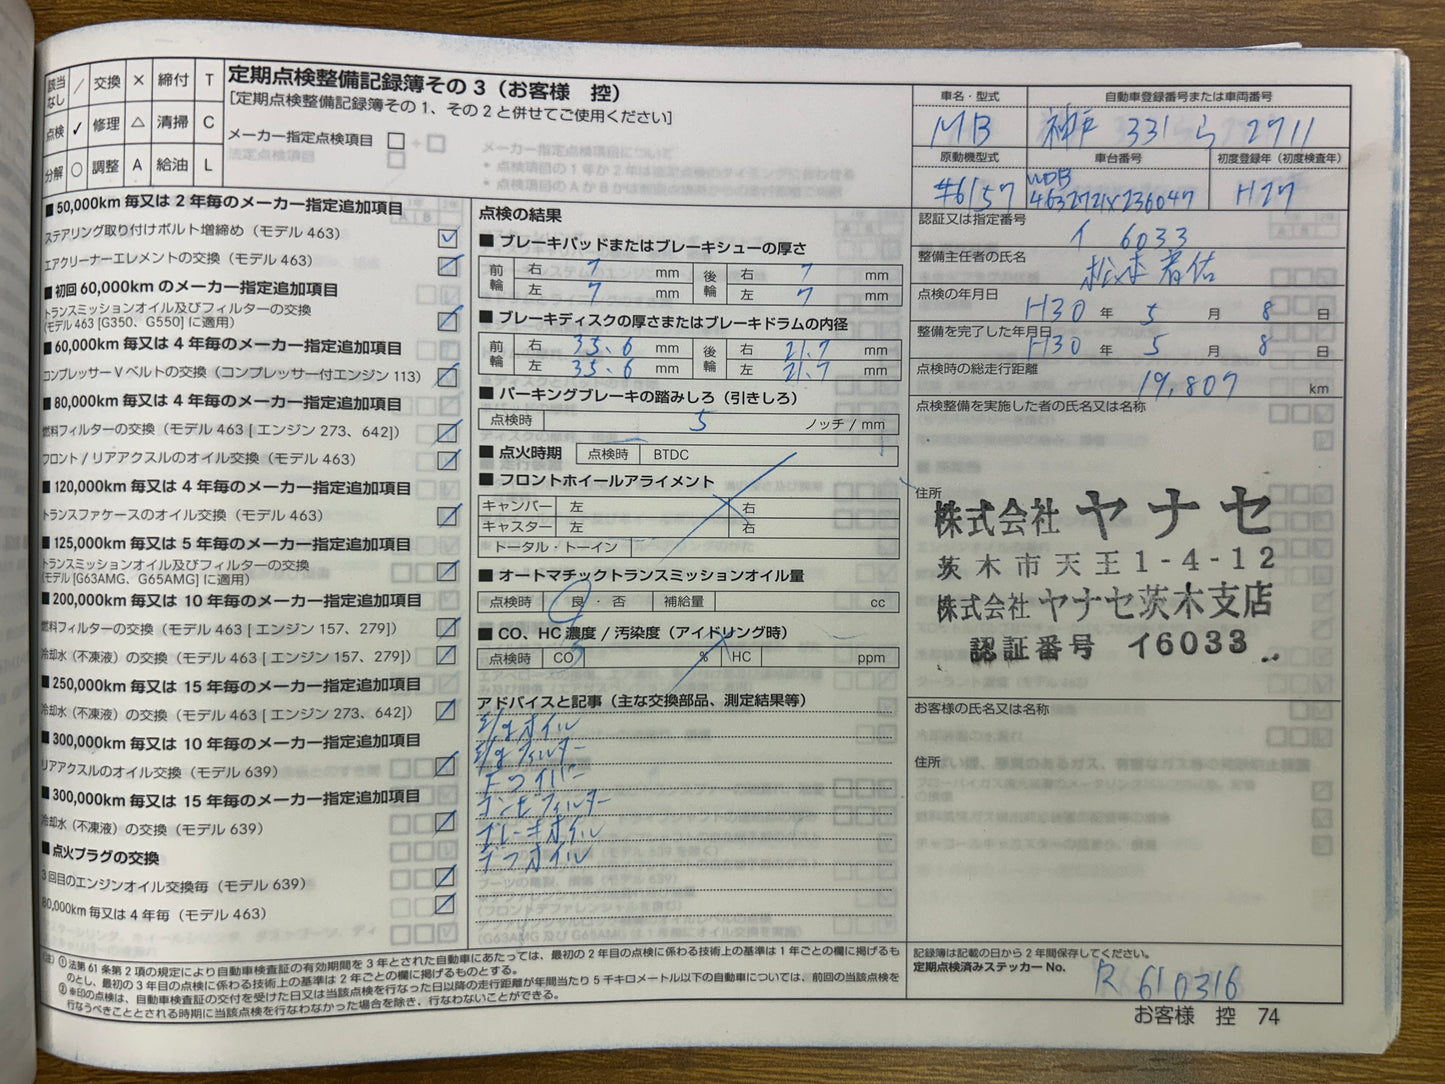 該当なし ／ 交換 × 締付 T
点検 ✓ 修理 △ 清掃 C
分解 ○ 調整 A 給油 L
定期点検整備記録簿その３（お客様　控）
［定期点検整備記録簿その１、その２と併せてご使用ください］
メーカー指定点検項目
■ 50,000km 毎又は 2 年毎のメーカー指定追加項目
ステアリング取り付けボルト増締め（モデル 463）
エアクリーナーエレメントの交換（モデル 463）
■ 初回 60,000km のメーカー指定追加項目
トランスミッションオイル及びフィルターの交換
(モデル 463 [G350、G550] に適用)
■ 60,000km 毎又は 4 年毎のメーカー指定追加項目
コンプレッサー V ベルトの交換（コンプレッサー付エンジン 113）
■ 80,000km 毎又は 4 年毎のメーカー指定追加項目
燃料フィルターの交換（モデル 463 [ エンジン 273、642]）
フロント / リアアクスルのオイル交換（モデル 463）
■ 120,000km 毎又は 4 年毎のメーカー指定追加項目
トランスファケースのオイル交換（モデル 463）
■ 125,000km 毎又は 5 年毎のメーカー指定追加項目
トランスミッションオイル及びフィルターの交換
(モデル [G63AMG、G65AMG] に適用)
■ 200,000km 毎又は 10 年毎のメーカー指定追加項目
燃料フィルターの交換（モデル 463 [ エンジン 157、279]）
冷却水（不凍液）の交換（モデル 463 [ エンジン 157、279]）
■ 250,000km 毎又は 15 年毎のメーカー指定追加項目
冷却水（不凍液）の交換（モデル 463 [ エンジン 273、642]）
■ 300,000km 毎又は 10 年毎のメーカー指定追加項目
リアアクスルのオイル交換（モデル 639）
■ 300,000km 毎又は 15 年毎のメーカー指定追加項目
冷却水（不凍液）の交換（モデル 639）
■ 点火プラグの交換
3 回目のエンジンオイル交換毎（モデル 639）
80,000km 毎又は 4 年毎（モデル 463）
点検の結果
■ ブレーキパッドまたはブレーキシューの厚さ
前輪 右 7 mm 後輪 右 7 mm
左 7 mm 左 7 mm
■ ブレーキディスクの厚さまたはブレーキドラムの内径
前輪 右 35.6 mm 後輪 右 21.7 mm
左 35.6 mm 左 21.7 mm
■ パーキングブレーキの踏みしろ（引きしろ）
点検時 5 ノッチ / mm
■ 点火時期 点検時 BTDC
■ フロントホイールアライメント
キャンバー 左 右
キャスター 左 右
トータル・トーイン
■ オートマチックトランスミッションオイル量
点検時 良 ・ 否 補給量 cc
■ CO、HC 濃度 / 汚染度（アイドリング時）
点検時 CO % HC ppm
アドバイスと記事（主な交換部品、測定結果等）
E/gオイル
E/gフィルター
ドワイパー
コンビフィルター
ブレーキオイル
デフオイル
車名・型式 自動車登録番号または車両番号
MB 神戸 331 ら 2711
原動機型式 車台番号 初度登録年（初度検査年）
#6157 WDB 4632721X236047 H27
認証又は指定番号
イ 6033
整備主任者の氏名
点検の年月日
H30 年 5 月 8 日
整備を完了した年月日
H30 年 5 月 8 日
点検時の総走行距離
19,807 km
点検整備を実施した者の氏名又は名称
住所
株式会社 ヤナセ
茨木市天王1-4-12
株式会社 ヤナセ茨木支店
認証番号 イ6033
お客様の氏名又は名称
住所
記録簿は記載の日から 2 年間保存してください。
定期点検済みステッカー No.
R 610316
（注）① 法第 61 条第 2 項の規定により自動車検査証の有効期間を 3 年とされた自動車にあたっては、最初の 2 年目の点検に係わる技術上の基準は 1 年ごとの欄に掲げるも
のとし、最初の 3 年目の点検に係わる技術上の基準は 2 年ごとの欄に掲げるものとする。
② ※印の点検は、自動車検査証の交付を受けた日又は当該点検を行なった日以降の走行距離が年間当たり 5 千キロメートル以下の自動車については、前回の当該点検を
行なうべきこととされる時期に当該点検を行なわなかった場合を除き、行なわないことができる。
お客様　控　74